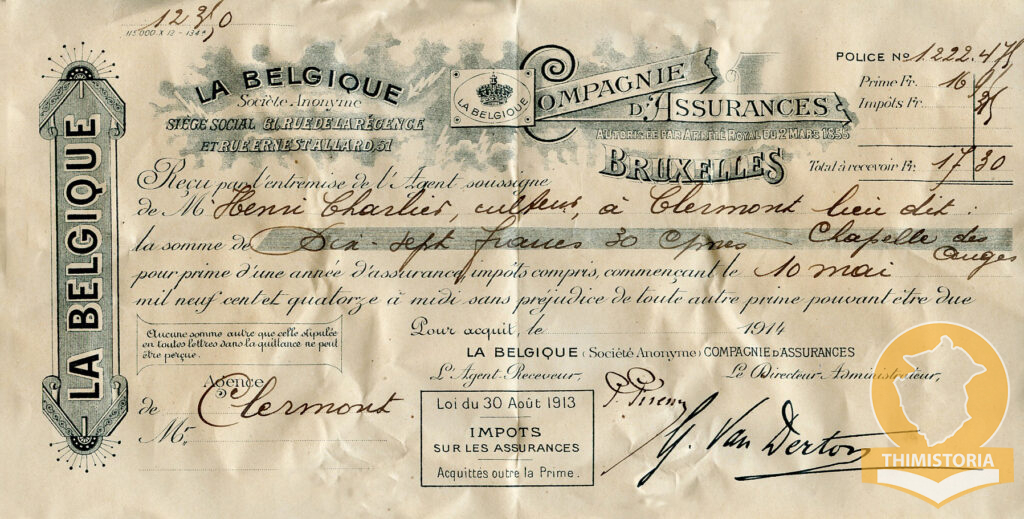 12350
115.000 X 12 - 134A
LA BELGIQUE
LA BELGIQUE
Société Anonyme
SIÈGE SOCIAL 61, RUE DE LA RÉGENCE
ET RUE ERNEST ALLARD, 51
LA BELGIQUE
COMPAGNIE
D'ASSURANCES
AUTORISÉE PAR ARRÊTÉ ROYAL DU 2 MARS 1855
BRUXELLES
POLICE No 1.222.475
Prime Fr. 16
Impôts Fr.
Total à recevoir Fr. 17 30
Reçu par l'entremise de l'Agent soussigné
de M. Henri Charlier, culteur, à Clermont lieu dit :
la somme de Dix-sept francs 30 Cmes Chapelle des
Anges
pour prime d'une année d'assurance, impôts compris, commençant le 10 mai
mil neuf cent et quatorze à midi sans préjudice de toute autre prime pouvant être due
Aucune somme autre que celle stipulée
en toutes lettres dans la quittance ne peut
être perçue.
Pour acquit, le 1914
LA BELGIQUE (Société Anonyme) COMPAGNIE D'ASSURANCES
L'Agent-Receveur, Le Directeur-Administrateur,
Agence
de Clermont
Mr
Loi du 30 Août 1913
IMPOTS
SUR LES ASSURANCES
Acquittés outre la Prime.
THIMISTORIA